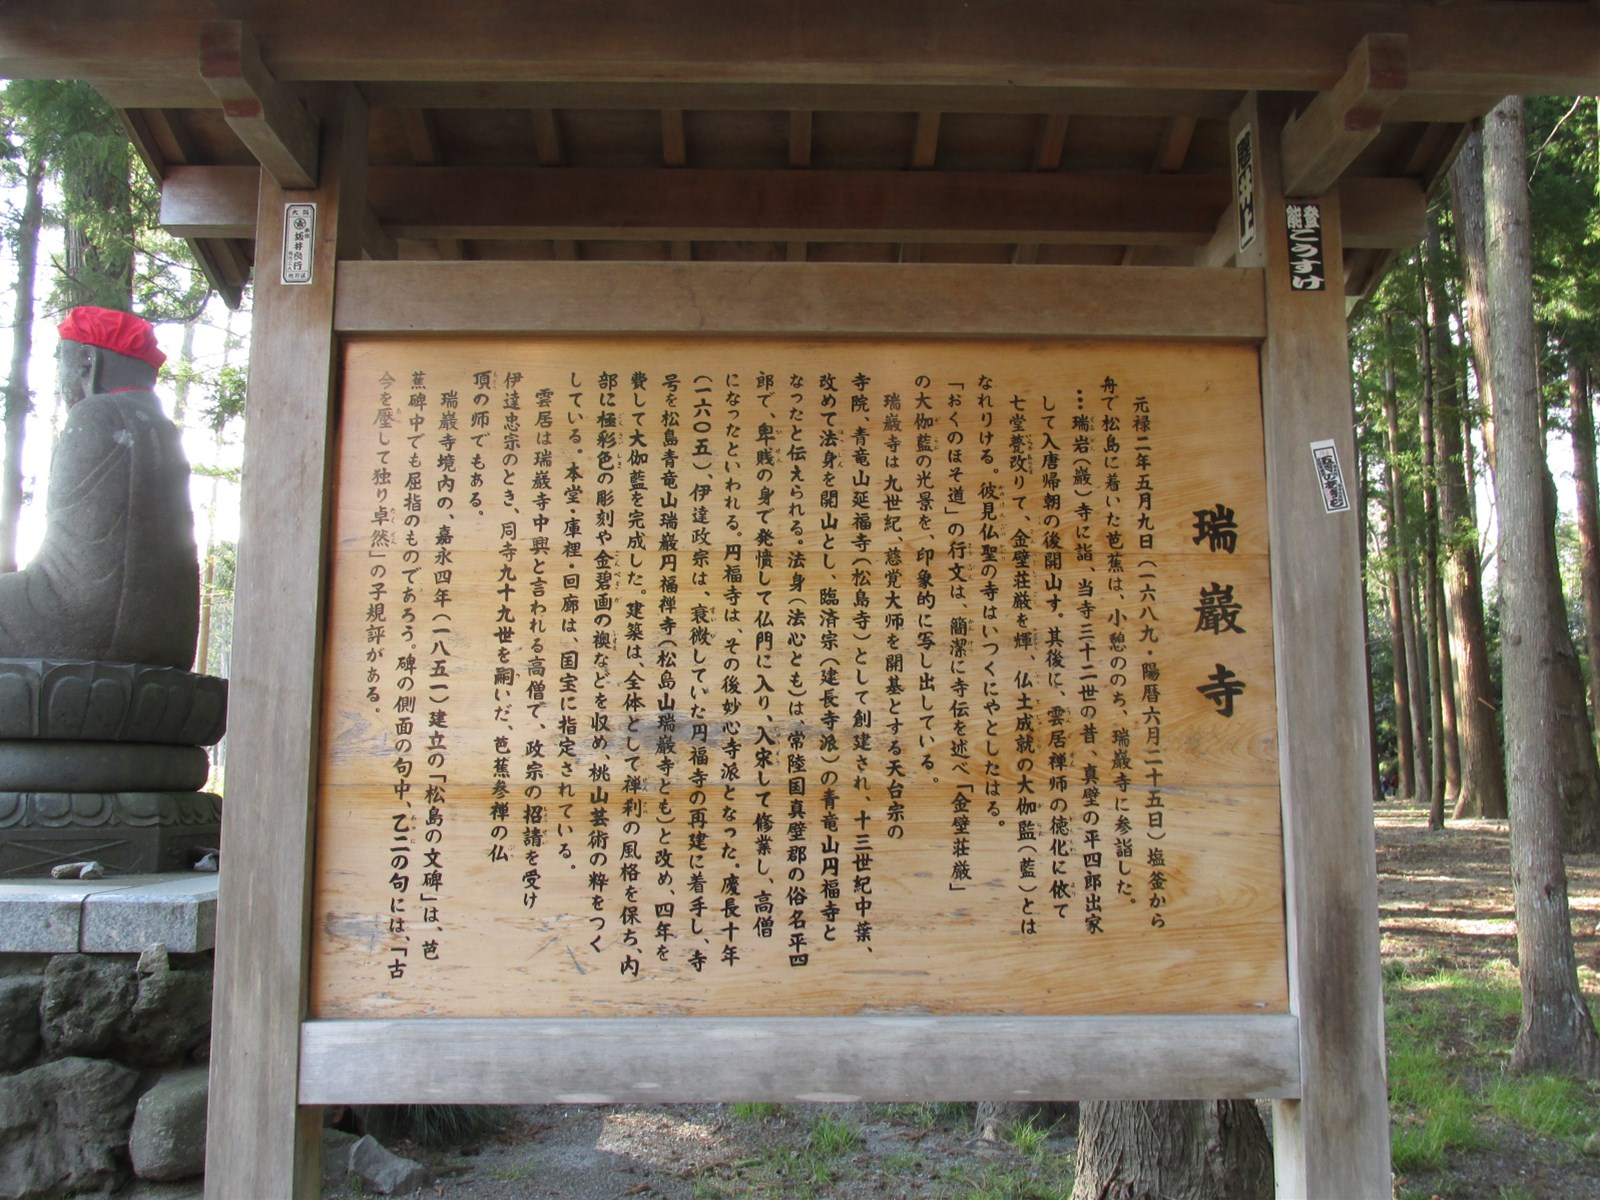 瑞巖寺
元禄二年五月九日（一六八九・陽暦六月二十五日）塩釜から
舟で松島に着いた芭蕉は、小憩ののち、瑞巖寺に参詣した。
…瑞岩（巖）寺に詣、当寺三十二世の昔、真壁の平四郎出家
して入唐帰朝の後開山す。其後に、雲居禅師の徳化に依て
七堂甍改りて、金壁荘厳を輝、仏土成就の大伽監（藍）とは
なれりける。彼見仏聖の寺はいつくにやとしたはる。
「おくのほそ道」の行文は、簡潔に寺伝を述べ「金壁荘厳」
の大伽藍の光景を、印象的に写し出している。
瑞巖寺は九世紀、慈覚大師を開基とする天台宗の
寺院、青竜山延福寺（松島寺）として創建され、十三世紀中葉、
改めて法身を開山とし、臨済宗（建長寺派）の青竜山円福寺と
なったと伝えられる。法身（法心とも）は、常陸国真壁郡の俗名平四
郎で、卑賎の身で発憤して仏門に入り、入宋して修業し、高僧
になったといわれる。円福寺は、その後妙心寺派となった。慶長十年
（一六〇五）、伊達政宗は、衰微していた円福寺の再建に着手し、寺
号を松島青竜山瑞巖円福禅寺（松島山瑞巖寺とも）と改め、四年を
費して大伽藍を完成した。建築は、全体として禅刹の風格を保ち、内
部に極彩色の彫刻や金碧画の襖などを収め、桃山芸術の粋をつく
している。本堂・庫裡・回廊は、国宝に指定されている。
雲居は瑞巖寺中興と言われる高僧で、政宗の招請を受け
伊達忠宗のとき、同寺九十九世を嗣いだ、芭蕉参禅の仏
頂の師でもある。
瑞巖寺境内の、嘉永四年（一八五一）建立の「松島の文碑」は、芭
蕉碑中でも屈指のものであろう。碑の側面の句中、乙二の句には、「古
今を歴して独り卓然」の子規評がある。
こうすけ